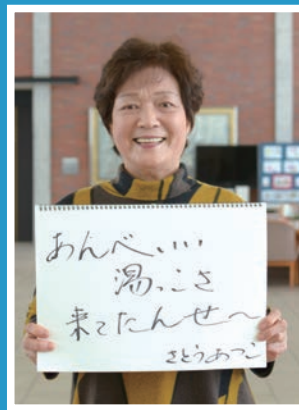 あんべいい
湯っこさ
来てたんせ～
さとうあつこ